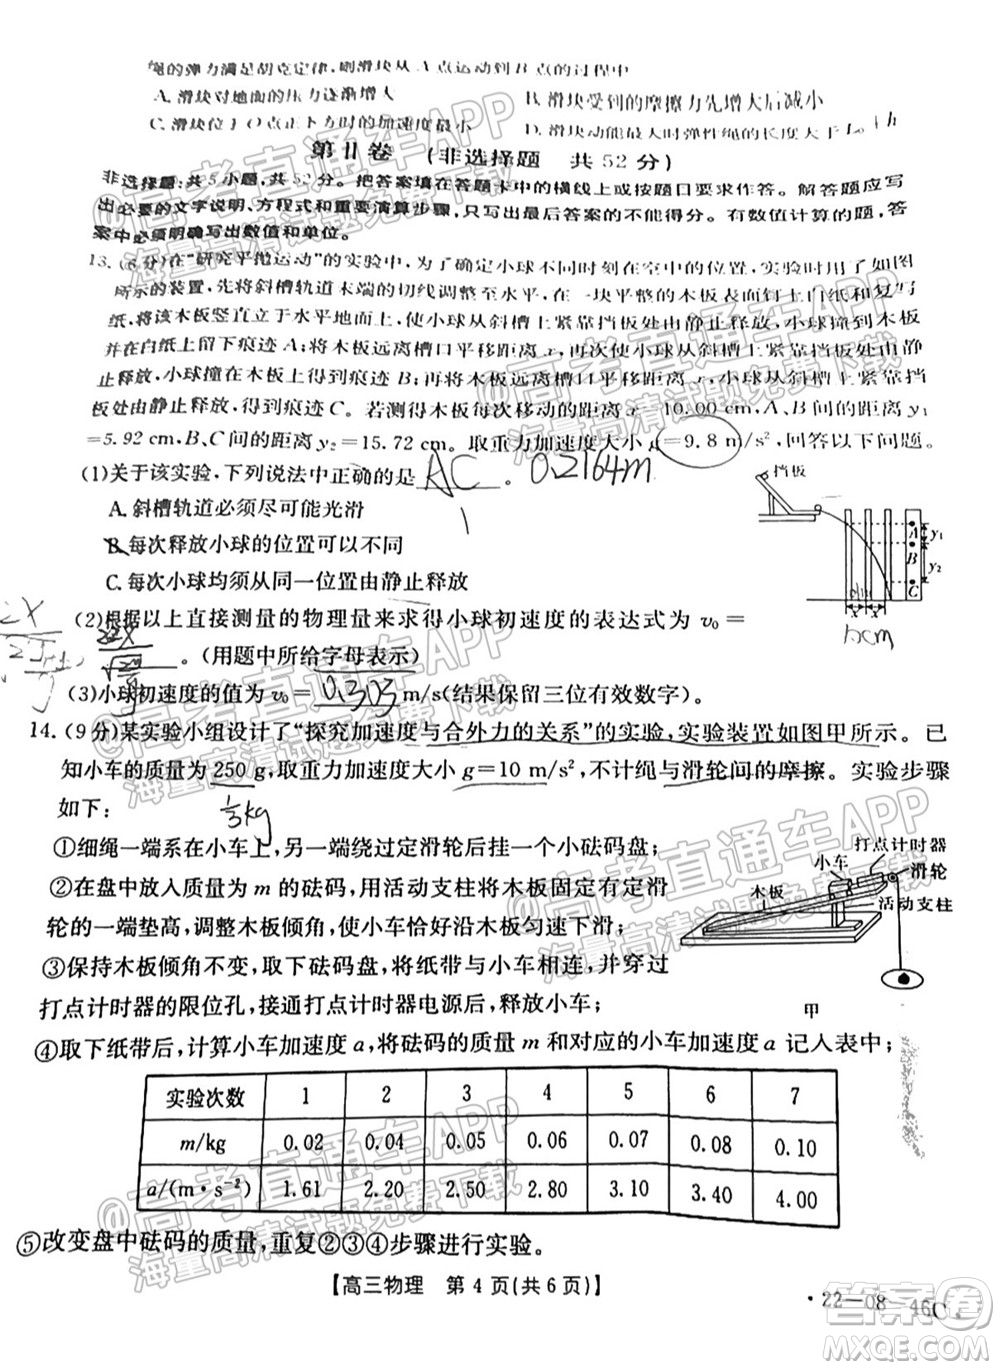 绳的弹力满足胡克定律,则滑块从 A 点运动到 B 点的过程中
A. 滑块对地面的压力逐渐增大
B. 滑块受到的摩擦力先增大后减小
C. 滑块位于 O 点正下方时的加速度最小
D. 滑块动能最大时弹性绳的长度大于 L₀+h
第Ⅱ卷 (非选择题 共 52 分)
非选择题:共 5 小题,共 52 分。把答案填在答题卡中的横线上或按题目要求作答。解答题应写
出必要的文字说明、方程式和重要演算步骤,只写出最后答案的不能得分。有数值计算的题,答
案中必须明确写出数值和单位。
13. (6 分)在“研究平抛运动”的实验中,为了确定小球不同时刻在空中的位置,实验时用了如图
所示的装置,先将斜槽轨道末端的切线调整至水平,在一块平整的木板表面钉上白纸和复写
纸,将该木板竖直立于水平地面上,使小球从斜槽上紧靠挡板处由静止释放,小球撞到木板
并在白纸上留下痕迹 A;将木板远离槽口平移距离 x,再使小球从斜槽上紧靠挡板处由静止
释放,小球撞在木板上得到痕迹 B;再将木板远离槽口平移距离 x,小球从斜槽上紧靠挡
板处由静止释放,得到痕迹 C。若测得木板每次移动的距离 x=10.00 cm,A、B 间的距离 y₁
=5.92 cm,B、C 间的距离 y₂=15.72 cm。取重力加速度大小 g=9.8 m/s²,回答以下问题。
(1)关于该实验,下列说法中正确的是 AC 。 0.2164m
A. 斜槽轨道必须尽可能光滑
B. 每次释放小球的位置可以不同
C. 每次小球均须从同一位置由静止释放
挡板
A
B
C
y₁
y₂
x x
(2)根据以上直接测量的物理量来求得小球初速度的表达式为 v₀=
。(用题中所给字母表示)
(3)小球初速度的值为 v₀= 0.303 m/s(结果保留三位有效数字)
14. (9 分)某实验小组设计了“探究加速度与合外力的关系”的实验,实验装置如图甲所示。已
知小车的质量为 250 g,取重力加速度大小 g=10 m/s²,不计绳与滑轮间的摩擦。实验步骤
如下:
①细绳一端系在小车上,另一端绕过定滑轮后挂一个小砝码盘;
②在盘中放入质量为 m 的砝码,用活动支柱将木板固定有定滑
轮的一端垫高,调整木板倾角,使小车恰好沿木板匀速下滑;
③保持木板倾角不变,取下砝码盘,将纸带与小车相连,并穿过
打点计时器的限位孔,接通打点计时器电源后,释放小车;
打点计时器
小车
滑轮
木板
活动支柱
甲
④取下纸带后,计算小车加速度 a,将砝码的质量 m 和对应的小车加速度 a 记入表中;
实验次数 1 2 3 4 5 6 7
m/kg 0.02 0.04 0.05 0.06 0.07 0.08 0.10
a/(m·s⁻²) 1.61 2.20 2.50 2.80 3.10 3.40 4.00
⑤改变盘中砝码的质量,重复②③④步骤进行实验。
【高三物理 第 4 页(共 6 页)】
·22—08—46C·
@高考直通车APP
海量高清试题免费下载
答案圈
MXQE.COM